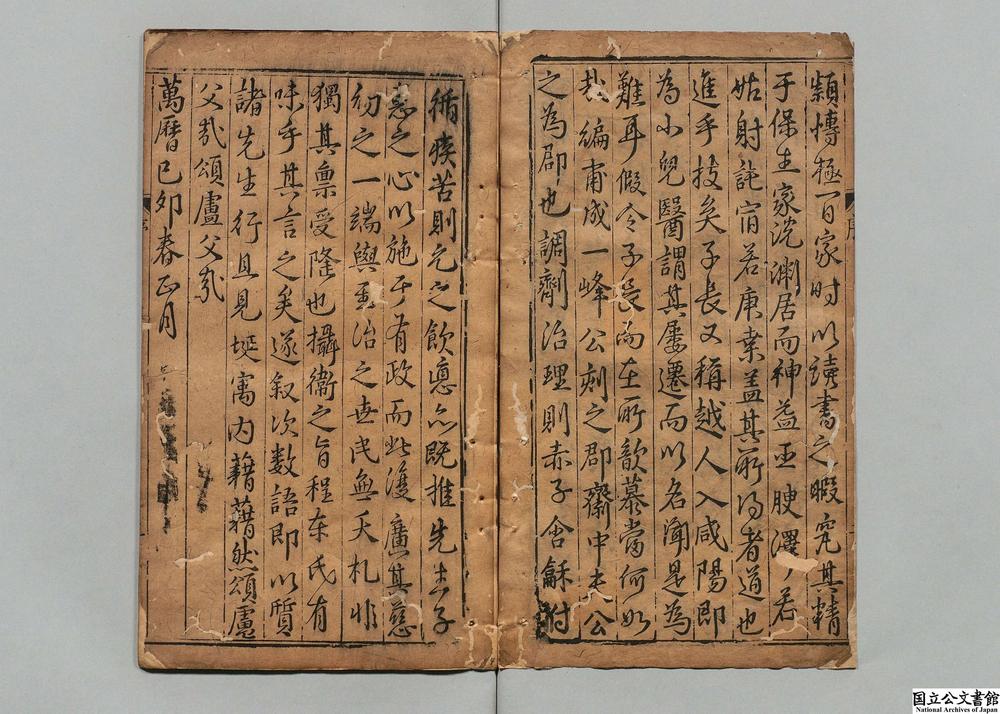 穎博極百家時以讀書之暇究其精
于保生家沈淵居而神益王腴澤之若
姑射詫宵若庚桑盖其所得者道也
進乎技矣子長又稱越人入咸陽即
為小兒醫謂其屢遷而以名聞是為
難耳假令子長而在所歆慕當何如
哉編甫成一峰公刻之郡齋中夫公
之為郡也調劑治理則赤子含龢附
循瘼苦則元之飲悳亦既推先生子
惠之心以施于有政而此復廣其慈
幼之一端與至治之世民無夭札非
獨其稟受隆也攝衛之旨程朱氏有
味乎其言之矣遂叙次數語即以質
諸先生行且見埏寓內藉藉然頌盧
父哉頌盧父哉
萬曆己卯春正月
序
国立公文書館
National Archives of Japan